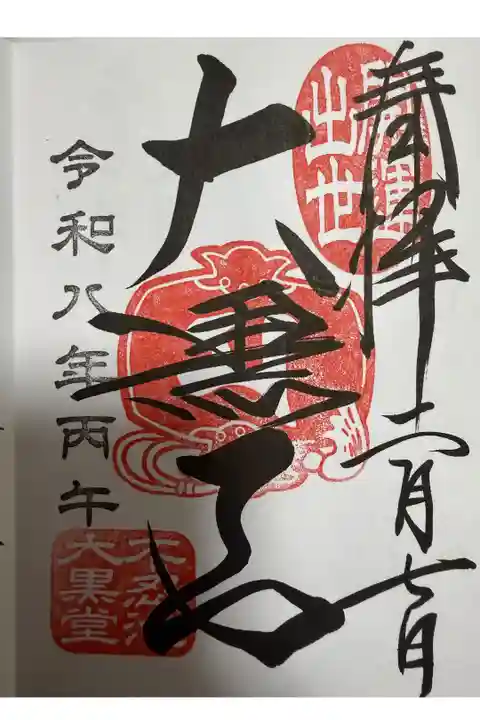 奉拝 二月七日
開運
出世
大黒天
令和八年丙午
大黒堂